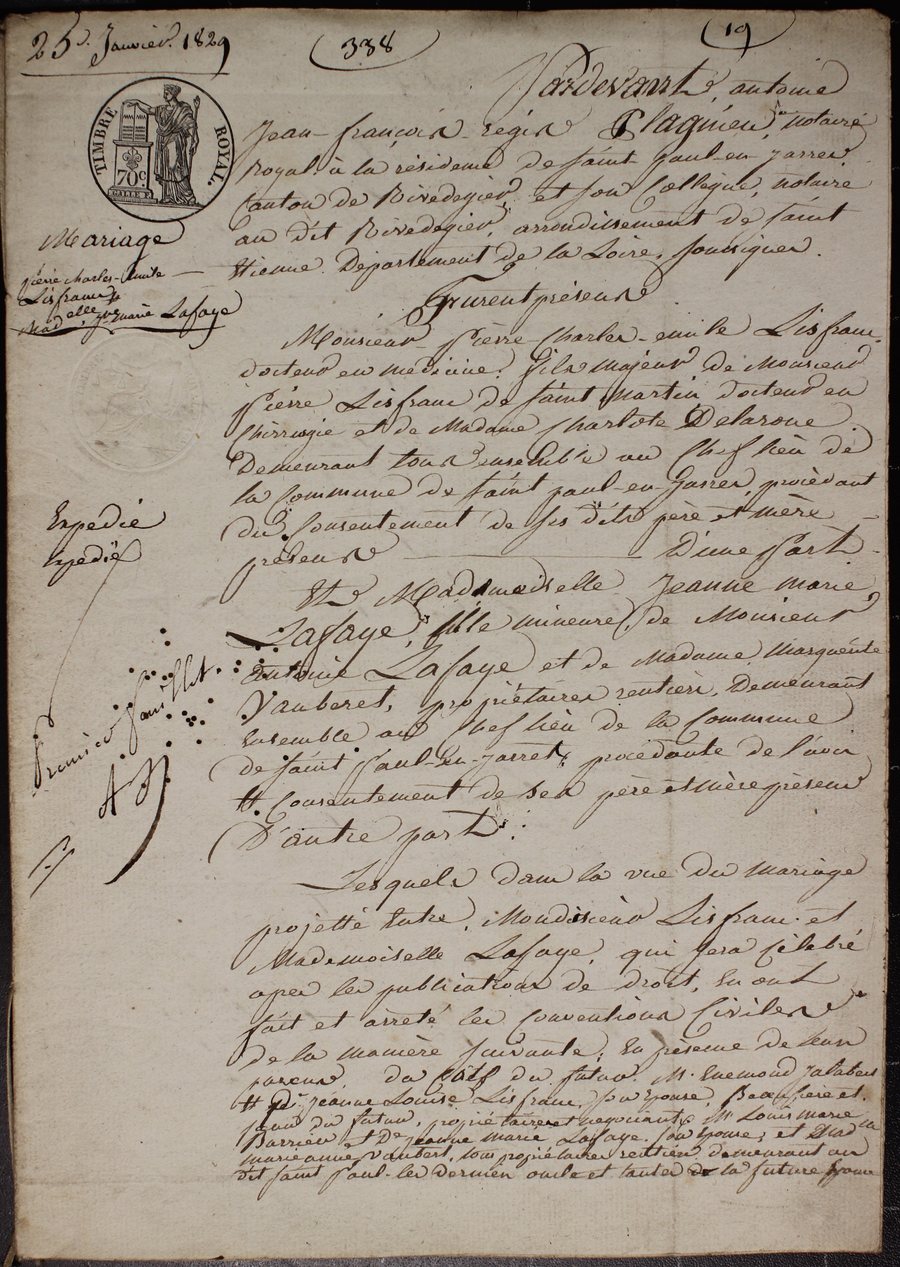 25. Janvier 1829
338
19
TIMBRE ROYAL.
70c
Pardevant antoine
Jean-françois-régis Plagnieu, notaire
Royal à la résidence de Saint-paul-en-jarrez
Canton de Rivedegier, et son Collègue, notaire
au dit Rivedegier, arrondissement de Saint
Etienne Département de la Loire, soussignés.
Mariage
pierre charles-emile
Lisfranc
Mad.elle j.ne marie Lafaye
Furent présens
Monsieur Pierre-Charles-emile Lisfranc
docteur en medecine, fils majeur de Monsieur
Pierre Lisfranc de Saint Martin docteur en
Chirurgie et de Madame Charlote Delaroue
Demeurant tous ensemble au Chef lieu de
la Commune de Saint paul-en-Jarrez, procèdant
du Consentement de ses dits père et mère
présens D'une Part
Expedié
Expedié
Et Mademoiselle Jeanne marie
Lafaye, fille mineure, de Monsieur
Antoine Lafaye et de Madame Marguérite
Vauberet, propriétaires rentiers, Demeurant
Ensemble au Chef lieu de la Commune
de Saint Paul-En-jarret, procèdante de l'avis
Et Consentement de ses père et mère présens
D'autre part.
Premier feuillet
Lesquels dans la vue du mariage
projetté Entre, Mondisieur Lisfranc et
Mademoiselle Lafaye, qui sera Célébré
apres les publications de droit, En ont
fait et arreté les Conventions Civiles
de la manière suivante, En présence de leurs
parens, du Coté du futur M. Enemond Jalabert
Et d.e Jeanne Louise Lisfranc, son épouse, Beaufrère et
sœur du futur, propriétaires et negociants M.r Louis marie
Barrieu et D.e Jeanne marie Lafaye, son épouse, et Mad.me
marieanne Vaubert, tous propriétaires rentiers demeurant au
dit Saint Paul-les derniers oncle et tantes de la future épouse